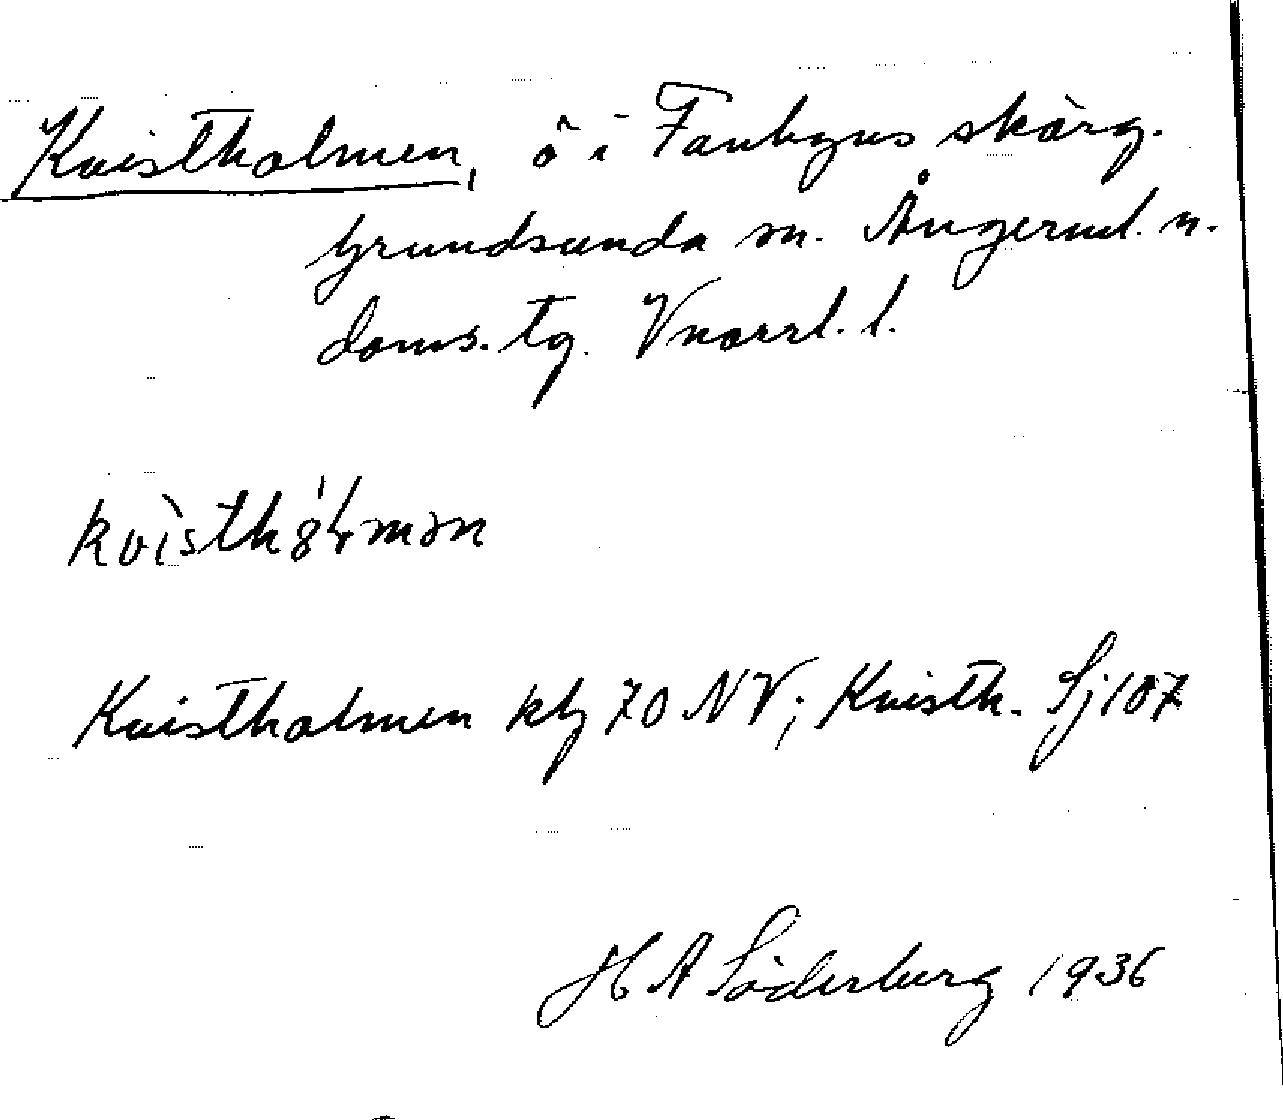 Kvistholmen, ö i Fanbyns skärg.
Grundsunda sn. Ångerml. n.
doms. tg. Vnorrl. l.
Kvistholmen kbl 70 NV; Kvisth. Sj 107
H A Söderberg 1936